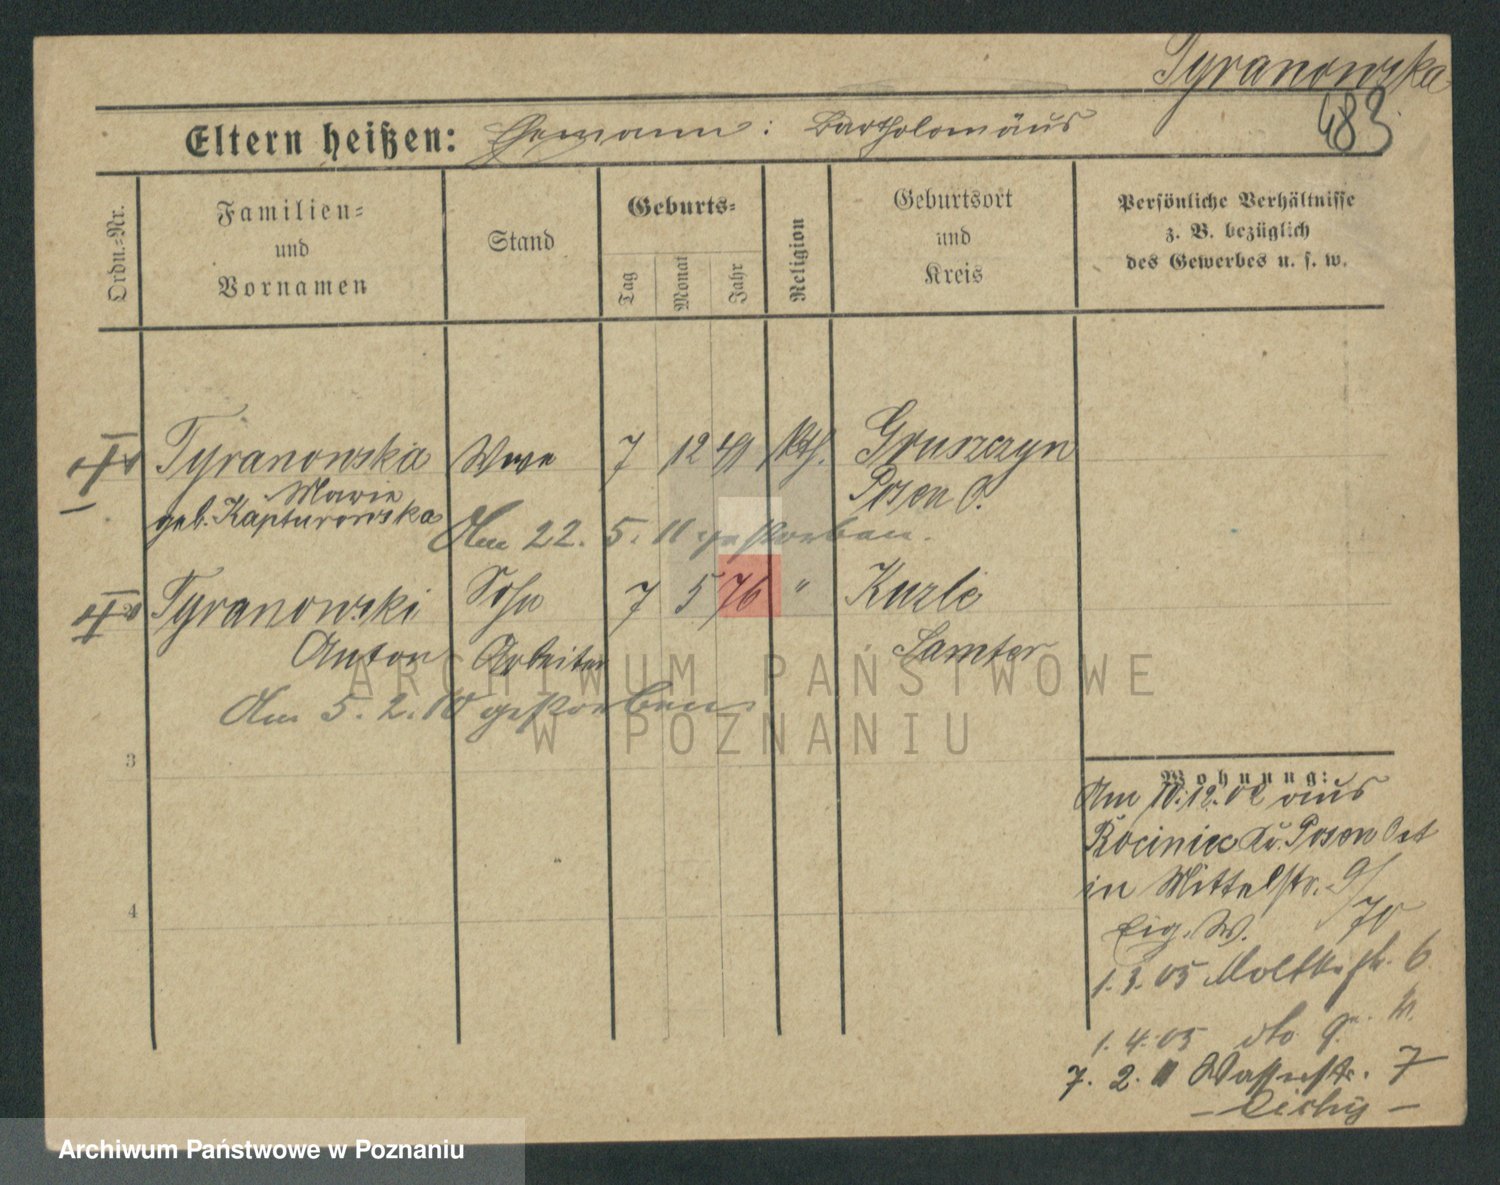 Tyranowska
483
Eltern heißen: Ehemann: Bartholomäus
Ordn.=Nr.
Familien=
und
Vornamen
Stand
Geburts=
Tag
Monat
Jahr
Religion
Geburtsort
und
Kreis
Persönliche Verhältnisse
z. B. bezüglich
des Gewerbes u. s. w.
Tyranowska Wwe 7 12 49 kth. Gruszczyn
Marie
geb. Kapturowska
Posen O.
Am 22. 5. 11 gestorben.
Tyranowski Sohn 7 5 76 " Kuzle
Anton Arbeiter Samter
Am 5. 2. 10 gestorben
3
4
Wohnung:
Am 10.12.02 aus
Kociniec Kr. Posen Ost
in Mittelstr. 9/70
Eig. W.
1. 3. 05 Moltkestr. 6
1. 4. 05 dto 9
7. 2. 11 Wasserstr. 7
ARCHIWUM PAŃSTWOWE
W POZNANIU
Archiwum Państwowe w Poznaniu